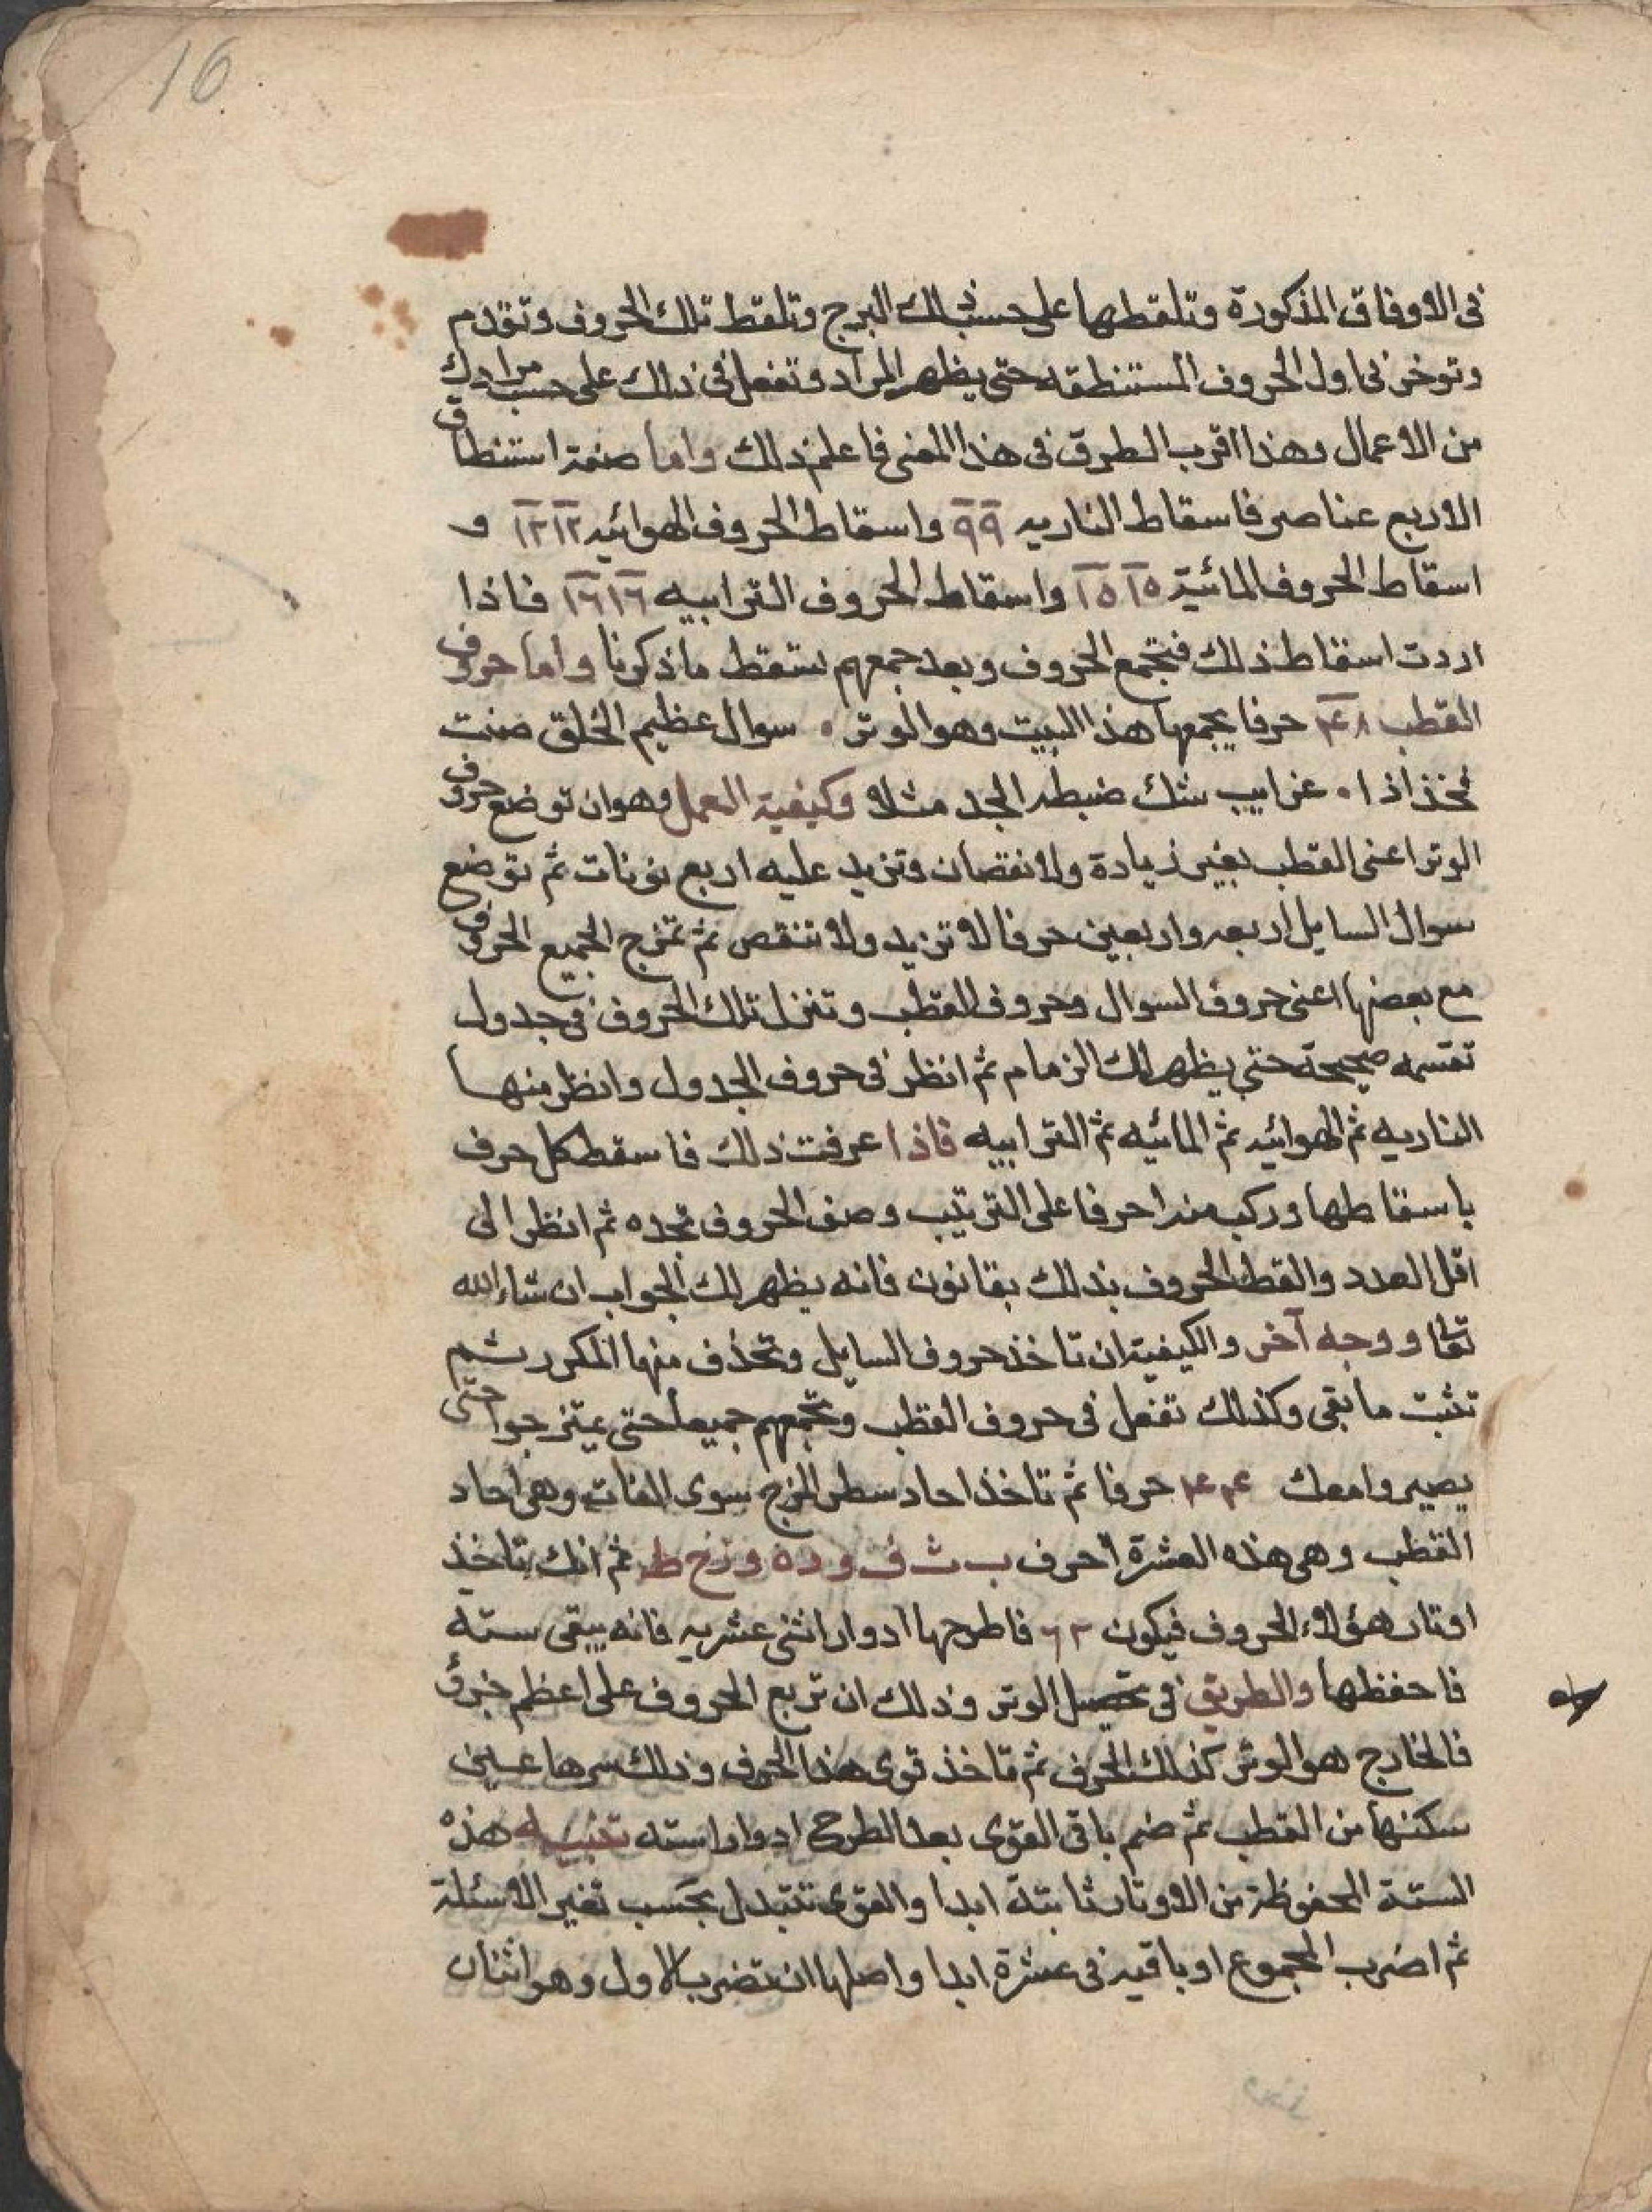 16
فى الاوفاق المذكورة وتلقطها على حسب ذلك البرج وتلقط تلك الحروف وتقدم
وتوخر فى اول الحروف المستنطقه حتى يظهر المراد وتفعل فى ذلك على حسب مرادك
من الاعمال وهذا اقرب الطرق فى هذا المعنى فاعلم ذلك واما صفة استنطاق
الاربع عناصر فاسقاط الناريه ٩٩ واسقاط الحروف الهوائيه ١٢١٢ و
اسقاط الحروف المائية ١٥١٥ واسقاط الحروف الترابيه ١٦١٦ فاذا
اردت اسقاط ذلك فتجمع الحروف وبعد جمعهم تسقط ما ذكرنا واما حروف
القطب حرفا يجمعها هذا البيت وهو الوتر سوال عظيم الخلق صنت
فخذ اذا غرايب شك ضبطه الجد مثلا وكيفية العمل وهو ان توضع حروف
الوتر اعنى القطب بغير زيادة ولا نقصان وتزيد عليه اربع نونات ثم توضع
سوال السايل اربعه واربعين حرفا لا تزيد ولا تنقص ثم تمزج الجميع الحروف
مع بعضها اعنى حروف السوال وحروف القطب وتنزل تلك الحروف فى جدول
تقسمه صحيحة حتى يظهر لك الزمام ثم انظر فى حروف الجدول وانظر منها
الناريه ثم الهوائيه ثم المائيه ثم الترابيه فاذا عرفت ذلك فاسقط كل حرف
باسقاطها وركب منه احرفا على الترتيب وصف الحروف تجده ثم انظر الى
اقل العدد والقط الحروف بذلك بقانون فانه يظهر لك الجواب ان شاء الله
تعا ووجه آخر والكيفية ان تاخذ حروف السايل وتحذف منها المكرر ثم
تثبت ما بقى وكذلك تفعل فى حروف القطب وتجمعهم جميعا حتى يمتزجوا حتى
يصيروا معك حرفا ثم تاخذ احاد سطر المزج سوى الفات وهى احاد
القطب وهى هذه العشرة احرف ب ث ف و د ه و ز ح ط ثم انك تاخذ
اوتار هؤلاء الحروف فيكون فاطرحها ادوار اثنى عشريه فانه يبقى ستة
فاحفظها والطريق فى تحصيل الوتر وذلك ان تربع الحروف على اعظم جزؤ
فالخارج هو الوتر كذلك الحرف ثم تاخذ قوى هذا الحرف وذلك سرها عين
سكنها من القطب ثم ضم باقى القوى بعد الطرح ادوارا سته تنبيه هذه
الستة المحفوظة من الاوتار ثابتة ابدا والقوى تتبدل بحسب تغير الاسئلة
ثم اضرب المجموع او باقيه فى عشرة ابدا واصلها ان تضرب الاول وهو اثنان